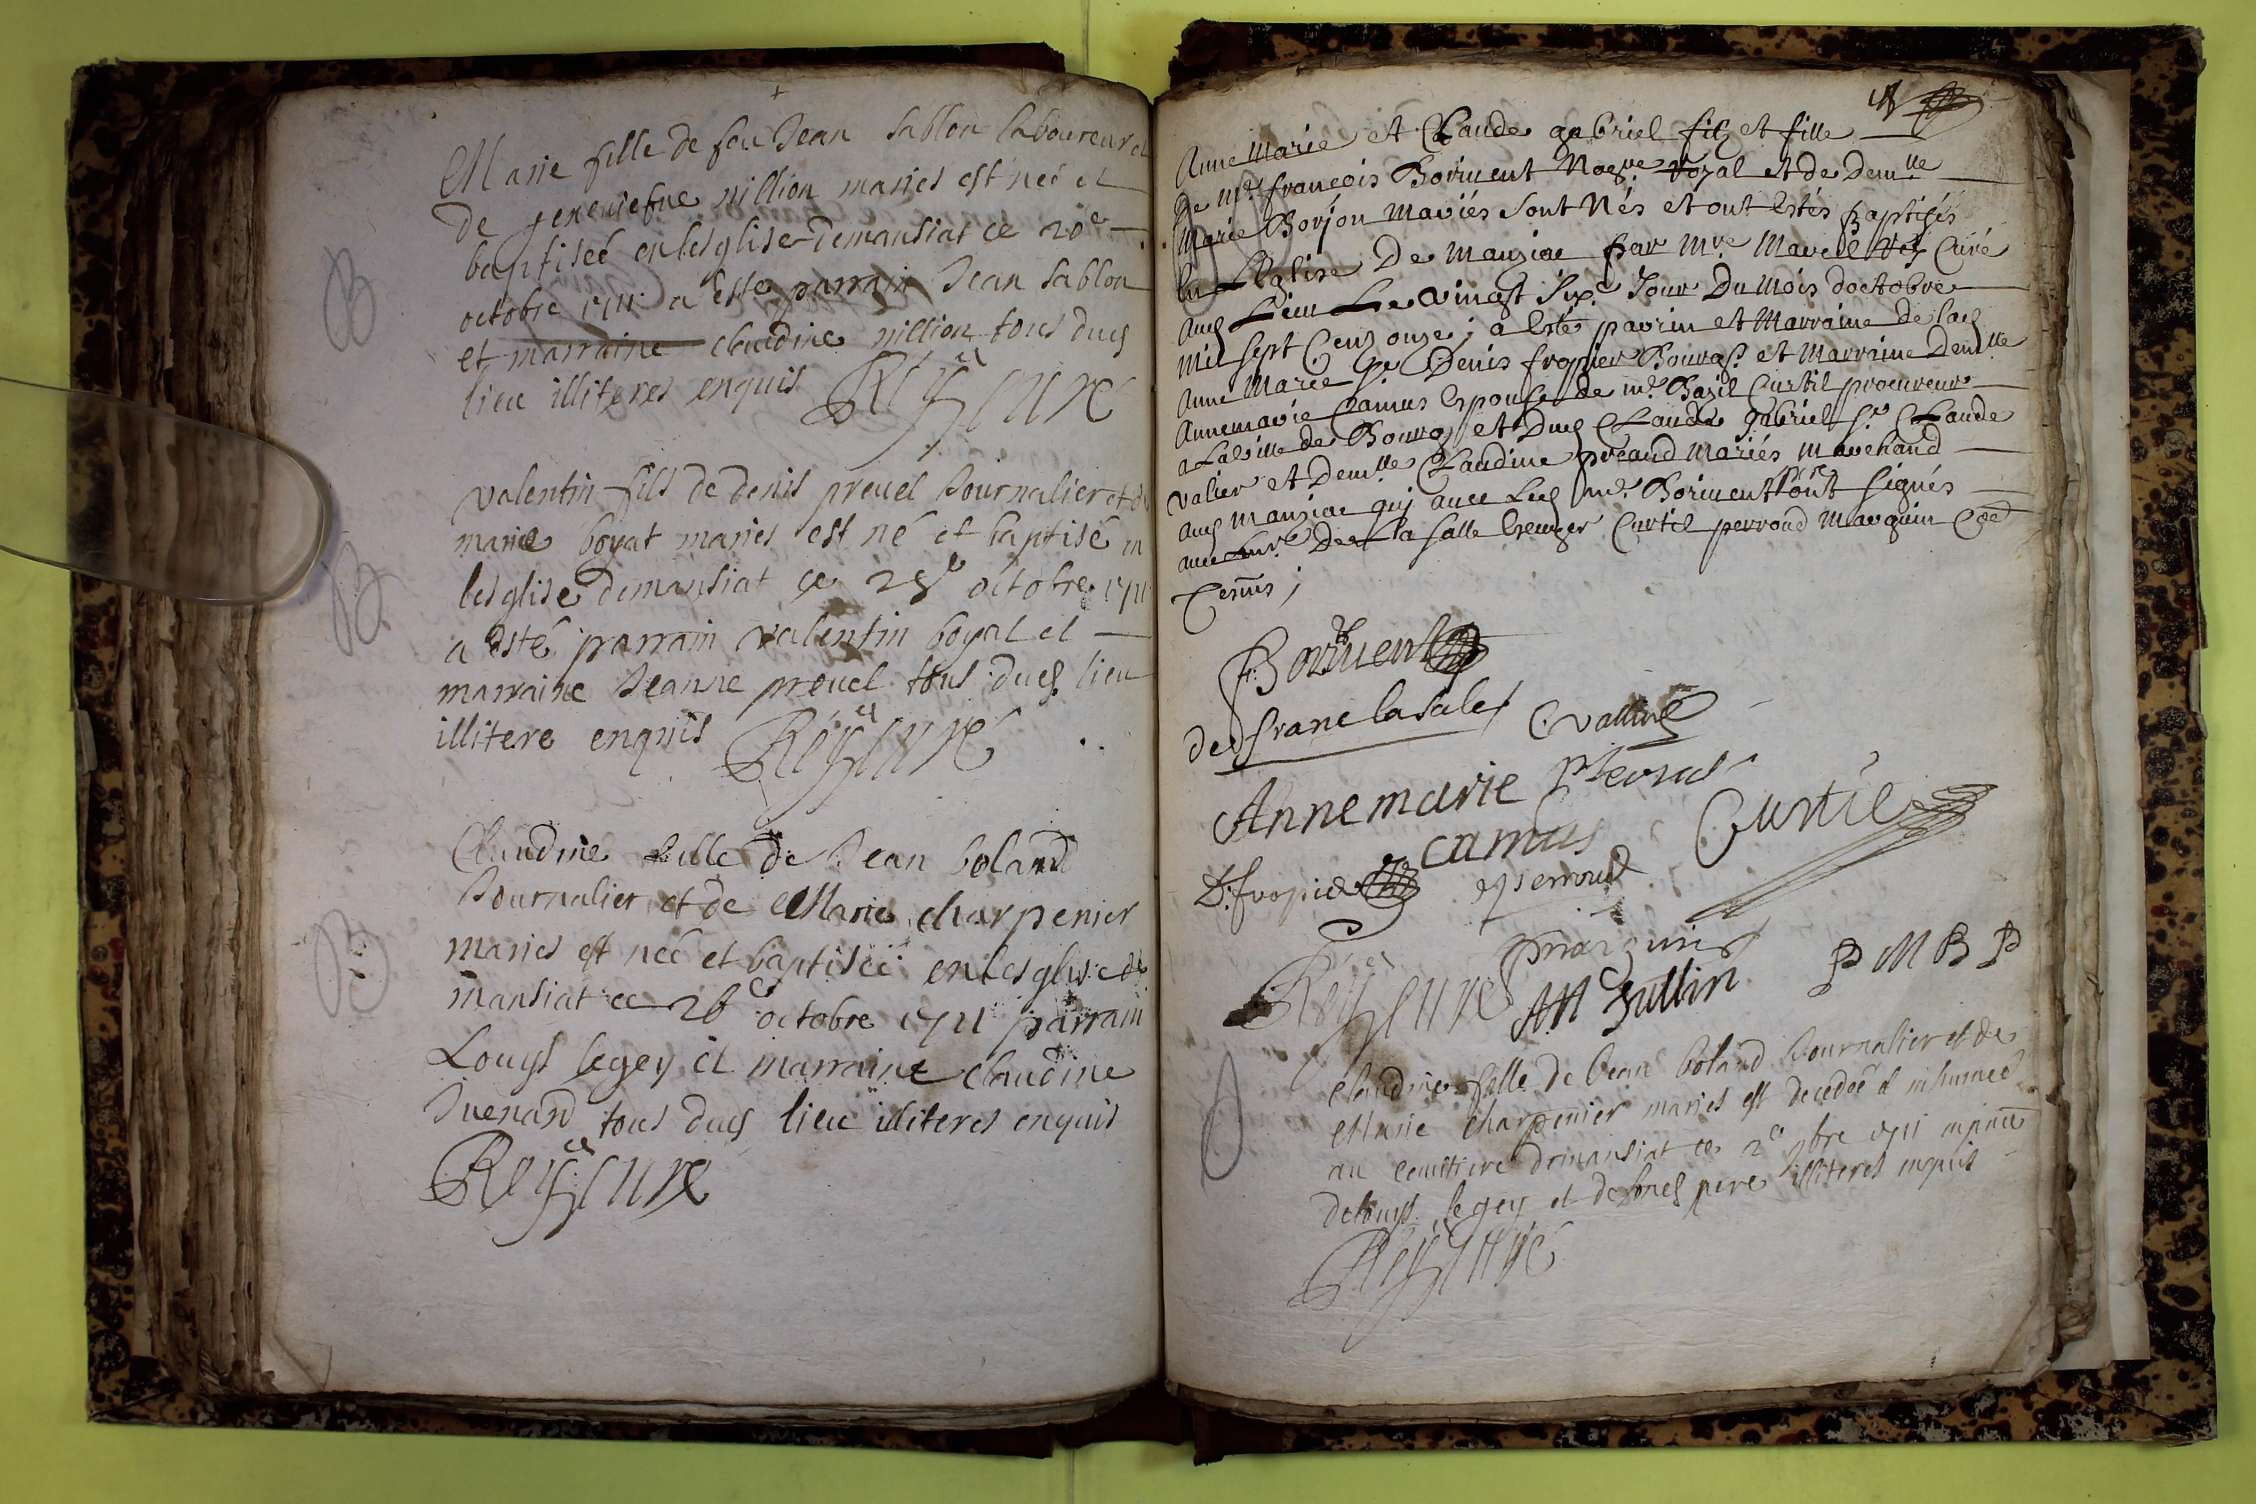 Marie fille de feu Jean Sablon laboureur et
de geneuiefue nillion maries est neé et
baptiseé en lesglise demansiat ce 20e
octobre 1711 a este parrain Jean Sablon
et marraine claudine nillion tous ducj
lieu illiteres enquis
valentin fils de denis preuel Journalier et de
marie boyat maries est né et baptisé en
lesglise demansiat ce 25e octobre 1711
a esté parrain valentin boyat et
marraine Jeanne preuel tous ducj lieu
illitere enquis
Claudine fille de Jean boland
Journalier et de Marie charpenier
maries est neé et baptiseé en lesglise de
mansiat ce 26e octobre 1711 parrain
Louys legey et marraine claudine
Juenard tous ducj lieu illiteres enquis
Anne Marie et Claude gabriel filz et fille
De me françois Boriuent Nore Royal et de Demlle
Marie Borjon mariés sont Nés et ont Estés Baptisés
En Leglise De Manziac par mre Curé
Aud Lieu Le vingt six.e Jour Du Mois doctobre
mil sept Cens onze ; a Esté parrin et Marraine de lad
Anne Marie Sr Denis fropier Bourgs et Marraine Demlle
Annemarie Camus Espouse de me Bazil Curtil procureur
a La ville de Bourg et Dud Claude gabriel Sr Claude
valier et Demlle Claudine preaud Mariés Marchand
aud manziac quj auec Led me Boriuent ont signés
auec De La Salle Curtil perroud Marquin
F Boriuent
de franc lasale
C vallier
Annemarie
camus
Curtil
D. fropier
perroud
marquin
M Jullin
P M B P
claudine fille de Jean boland Journalier et de
Marie charpenier maries est decedeé et inhumeé
au cemitiere demansiat ce 2e 9bre 1711 en pnce
de louys legey et de sond pere illiteres enquis